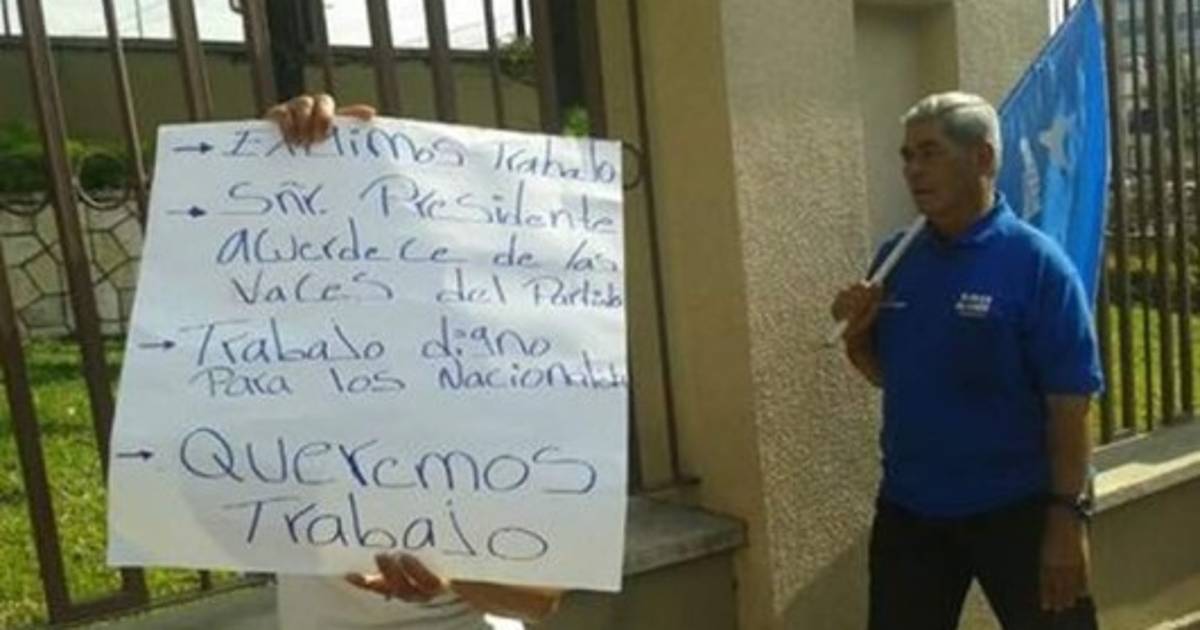 → Trabajo
→ Sñr. Presidente
acuerdece de las
Vaces del Partido
→ Trabajo digno
Para los
→ Queremos
Trabajo